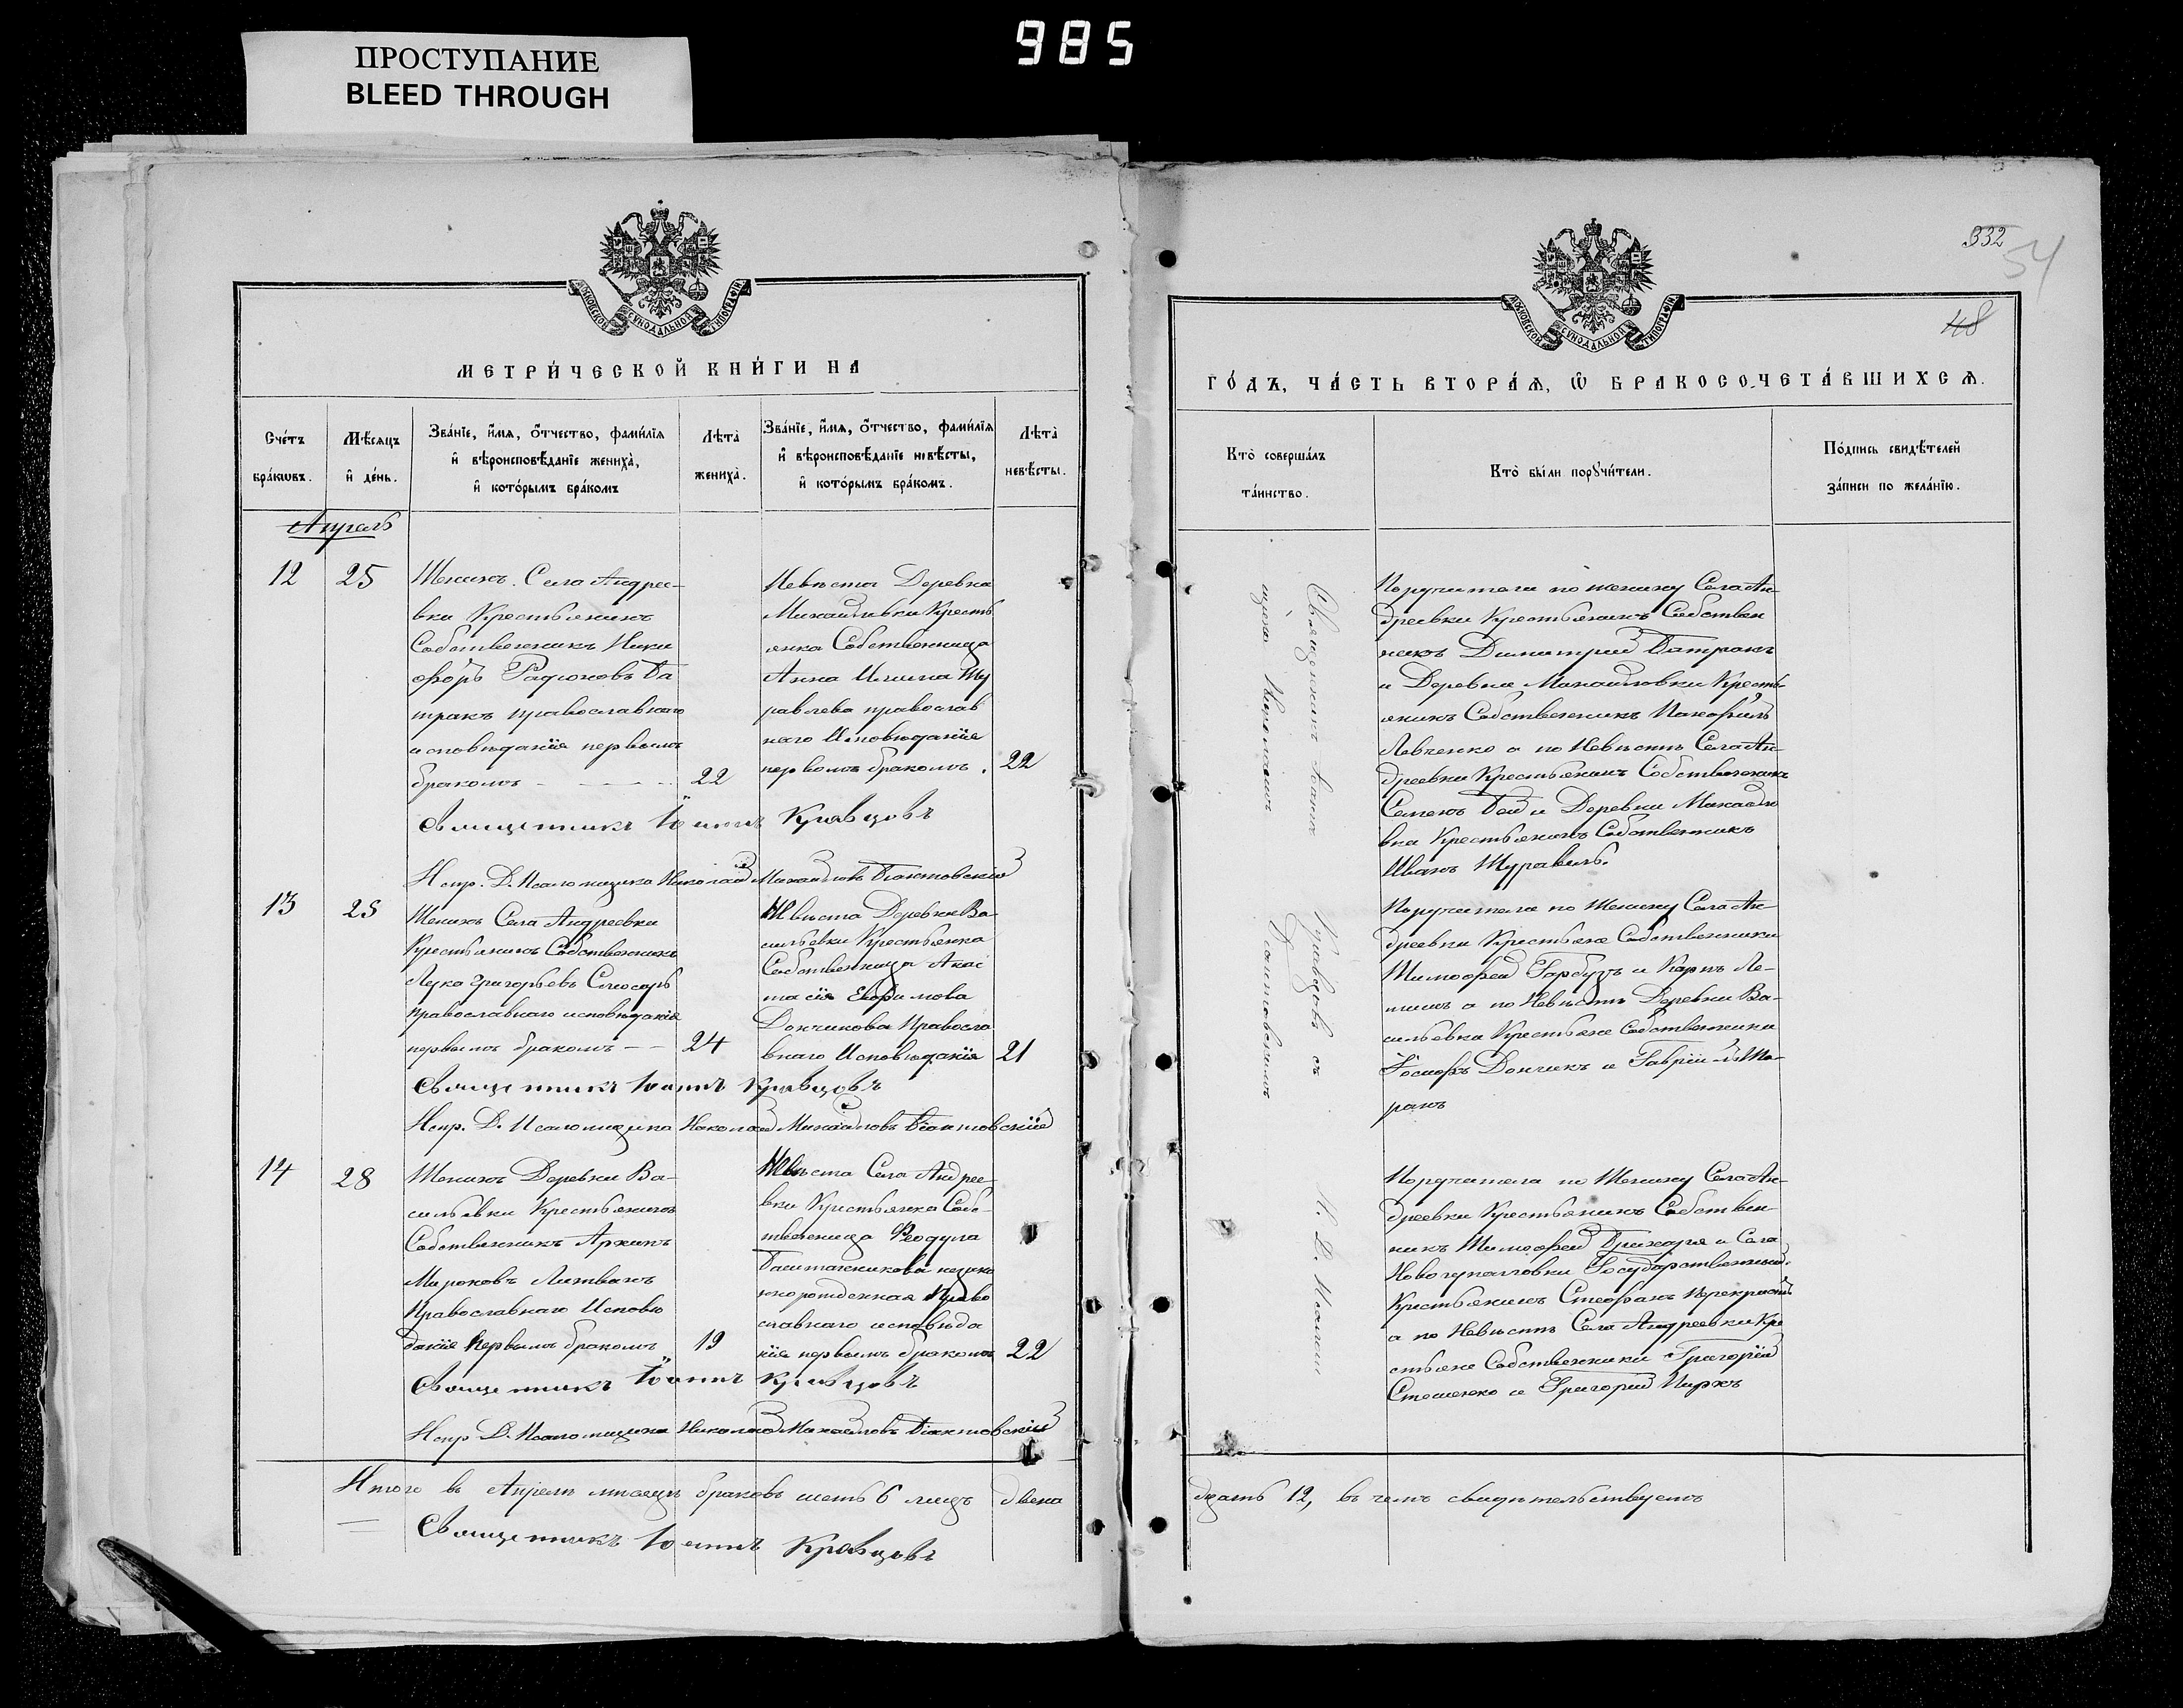 985
ПРОСТУПАНИЕ
BLEED THROUGH
МОСКОВСКОЙ СѴНОДАЛЬНОЙ ТИПОГРАФІИ
МЕТРИ́ЧЕСКОЙ КНИ́ГИ НА
Сче́тъ бра́кѡвъ.
Мѣ́сяцъ и҆ де́нь.
Зва́нїе, и҆́мѧ, ѻ҆́тчество, фами́лїѧ
и҆ вѣроисповѣ́данїе жениха̀,
и҆ кото́рымъ бра́комъ
Лѣта̀ жениха̀.
Зва́нїе, и҆́мѧ, ѻ҆́тчество, фами́лїѧ
и҆ вѣроисповѣ́данїе невѣ́сты,
и҆ кото́рымъ бра́комъ.
Лѣта̀ невѣ́сты.
Апрель
12
25
Женихъ Села Андрее-
вки Крестьянинъ
Собственникъ Ники
форъ Ба
тракъ православнаго
исповѣданія первымъ
бракомъ
22
Невѣста Деревни
Михайловки Кресть
янка Собственница
Анна Ильина Жу
равлева православ
наго Исповѣданія
первымъ бракомъ.
22
Священникъ Іоаннъ Кравцовъ
Испр. Д. Псаломщика Николай Михайловъ
13
25
Женихъ Села Андреевки
Крестьянинъ Собственникъ
Лука Григорьевъ Слюсарь
Православнаго исповѣданія
первымъ бракомъ
24
Невѣста Деревни Ва-
сильевки Крестьянка
Собственница Анас
тасія Ефимова
Дончикова Правосла
внаго Исповѣданія
21
Священникъ Іоаннъ Кравцовъ
Испр. Д. Псаломщика Николай Михайловъ
14
28
Женихъ Деревни Ва-
сильевки Крестьянинъ
Собственникъ Архипъ
Мироновъ Литвинъ
Православнаго Исповѣ
данія Первымъ бракомъ
19
Невѣста Села Андрее-
вки Крестьянка Соб-
ственница Феодула
Баштанникова незако
норожденная Право
славнаго исповѣда
нія первымъ бракомъ
22
Священникъ Іоаннъ Кравцовъ
Испр Д. Псаломщика Николай Михайловъ
Итого въ Апрелѣ мѣсяцѣ браковъ шесть 6 лицъ двена
Священникъ Іоаннъ Кравцовъ
332
54
48
МОСКОВСКОЙ СѴНОДАЛЬНОЙ ТИПОГРАФІИ
ГО́ДЪ, ЧА́СТЬ ВТОРА́Ѧ, Ѽ БРАКОСОЧЕТА́ВШИХСѦ.
Кто̀ соверша́лъ
та́инство.
Кто̀ бы́ли порꙋчи́тели.
По́дпись свидѣ́телей
за́писи по жела́нїю.
Священникъ Іоаннъ Кравцовъ съ И. Д. Псалом
щика Николаемъ
Поручители по жениху Села Ан-
дреевки Крестьянинъ Собствен
никъ Димитрій Батракъ
и Деревни Михайловки Кресть-
янинъ Собственникъ
Левченко а по Невѣстѣ Села Ан-
дреевки Крестьянинъ Собственникъ
Семенъ и Деревни Михайло
вки Крестьянинъ Собственникъ
Иванъ Журавель.
Поручители по Жениху Села Ан-
дреевки Крестьяне Собственники
Тимофей Гарбузъ и Карпъ
а по Невѣстѣ Деревни Ва-
сильевки Крестьяне Собственники
Іосифъ Дончикъ и Гавріилъ
Поручители по Жениху Села Ан-
дреевки Крестьянинъ Собствен-
никъ Тимофей и Села
Государственный
Крестьянинъ Стефанъ
а по Невѣстѣ Села Андреевки Кре
стьяне Собственники Григорій
и Григорій
дцать 12, въ чемъ свидѣтельствуемъ